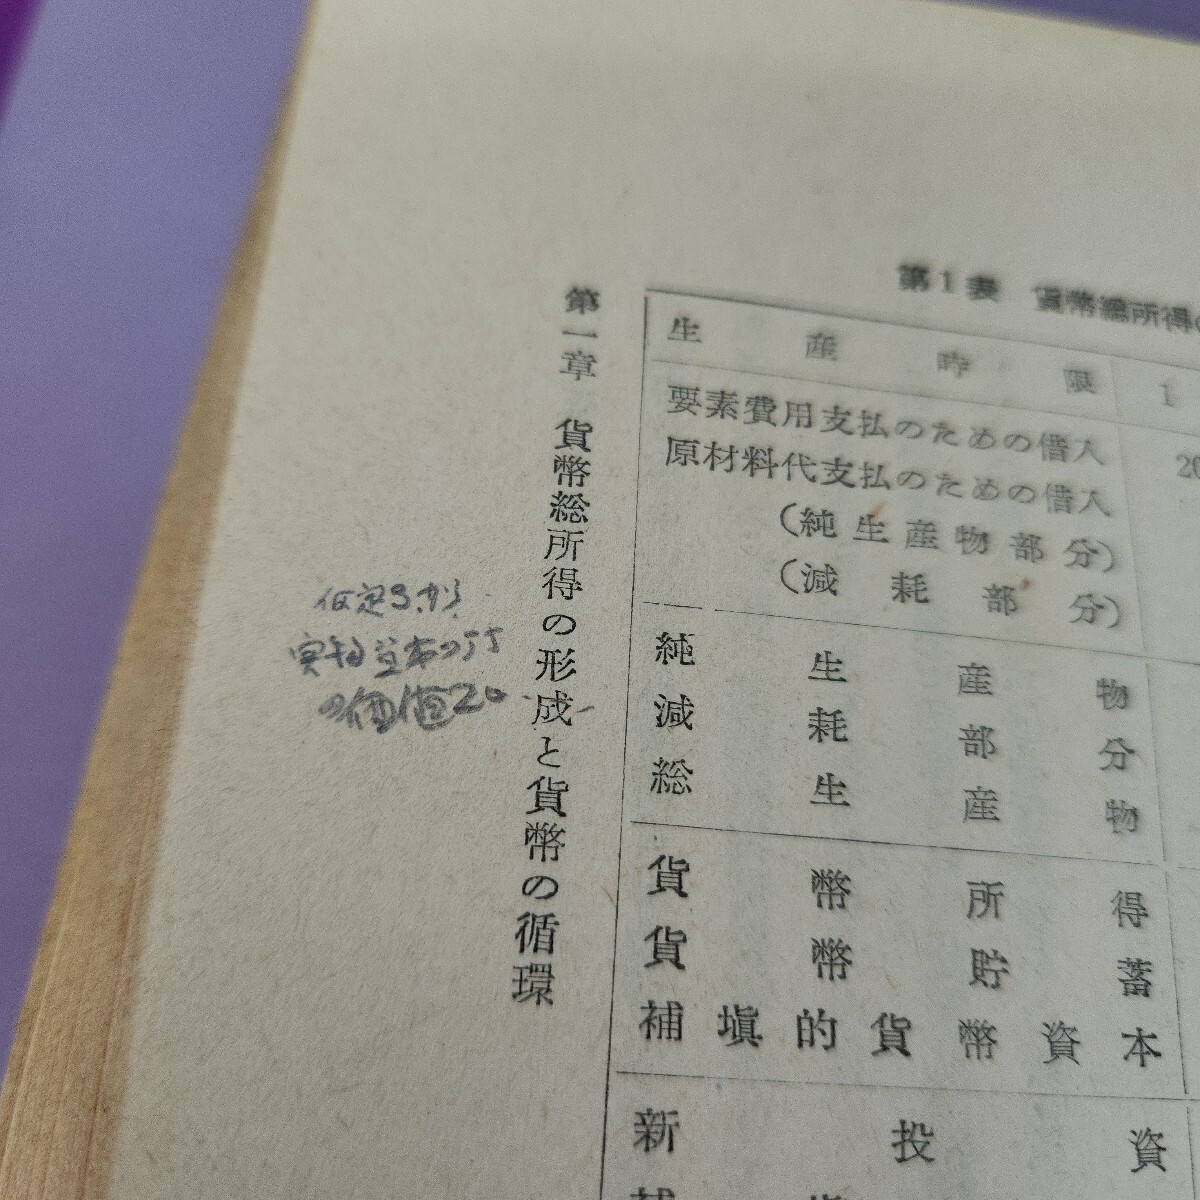 第1表 貨幣總所得の
第一章 貨幣総所得の形成と貨幣の循環
生産時限 1
要素費用支払のための借入 20
原材料代支払のための借入
(純生産物部分)
(減耗部分)
純生産物
減耗部分
総生産物
貨幣所得
貨幣貯蓄
補塡的貨幣資本
新投資
仮定3.から
実物資本の
の価値20